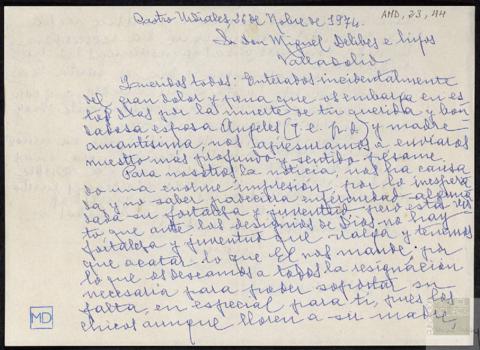 Castro Urdiales 26 de Nobre de 1974.
AMD, 23, 44
Sr Don Miguel Delibes e hijos
Valladolid
Queridos todos: Enterados incidentalmente
del gran dolor y pena que os embarga en es-
tos dias por la muerte de tu querida y bon-
dadosa esposa Angeles (q.e.p.d.) y madre
amantísima, nos apresuramos a enviaros
nuestro mas profundo y sentido pésame.
Para nosotros la noticia, nos ha causa
do una enorme impresión, por lo inespera
da y no saber padeciera enfermedad
dada su fortaleza y juventud pero está vis
to que ante los designios de Dios no hay
fortaleza y juventud que valga y tenemos
que acatar lo que El nos mande; por
lo que os deseamos a todos la resignación
necesaria para poder soportar su
falta, en especial para ti, pues los
chicos aunque lloren a su madre,
MD